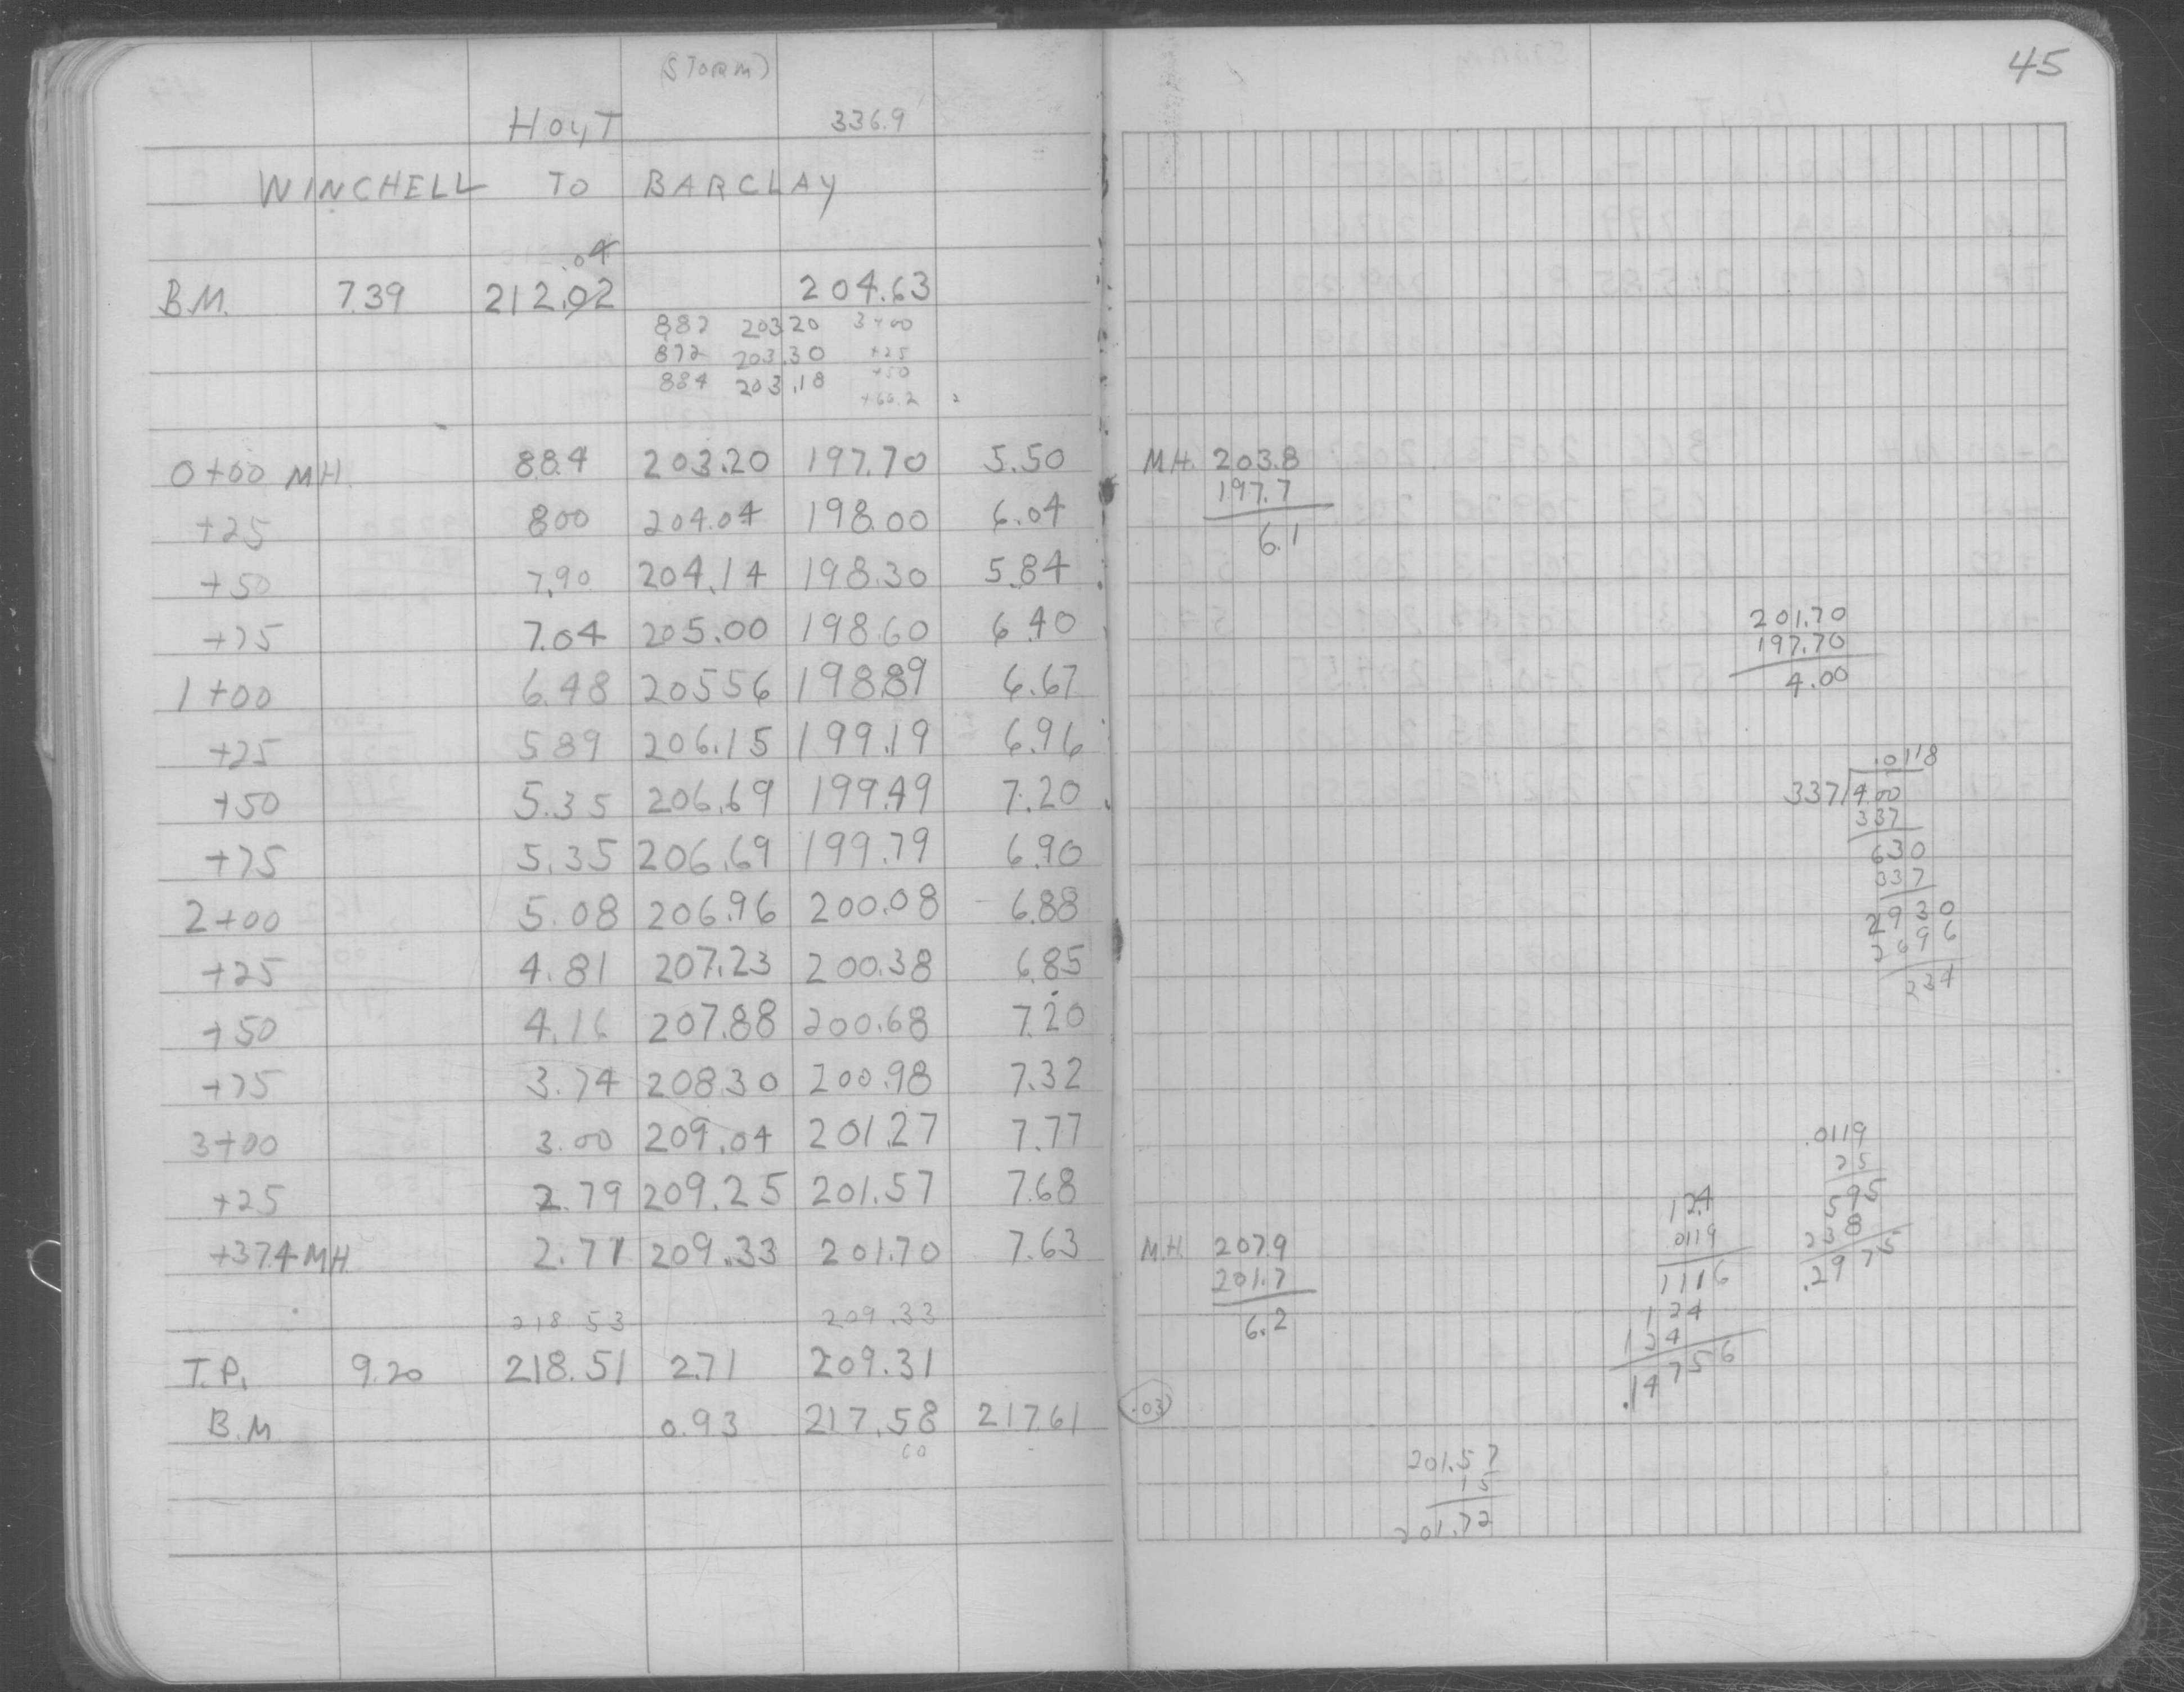 (STORM)
HOYT 336.9
WINCHELL TO BARCLAY
.04
B.M. 7.39 212.02 204.63
882 203.20 3+00
872 203.30 +25
884 203.18 +50
+66.2
0+00 MH. 8.84 203.20 197.70 5.50
+25 800 204.04 198.00 6.04
+50 7.90 204.14 198.30 5.84
+75 7.04 205.00 198.60 6.40
1+00 6.48 205 56 198.89 6.67
+25 5 89 206.15 199.19 6.96
+50 5.35 206.69 199.49 7.20
+75 5.35 206.69 199.79 6.90
2+00 5.08 206.96 200.08 6.88
+25 4.81 207.23 200.38 6.85
+50 4.16 207.88 200.68 7.20
+75 3.74 208 30 200.98 7.32
3+00 3.00 209.04 201.27 7.77
+25 2.79 209.25 201.57 7.68
+37.4 MH 2.71 209.33 201.70 7.63
218 53 209.33
T.P. 9.20 218.51 2.71 209.31
B.M 0.93 217.58 217.61 .03
60
45
MH. 203.8
197.7
6.1
201.70
197.70
4.00
.0118
337 4.00
337
630
337
2930
2696
234
.0119
25
595
238
.2975
12.4
.0119
1116
124
124
.14756
M.H. 207.9
201.7
6.2
201.57
15
201.72